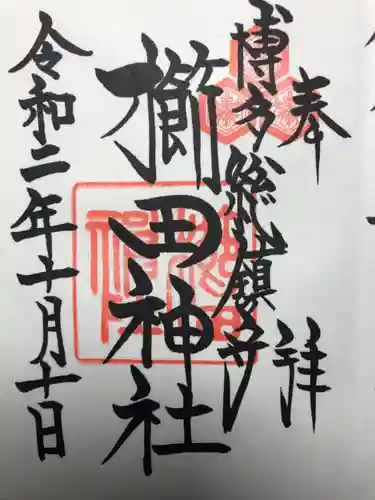 奉拝
博多総鎮守
櫛田神社
令和二年十月十日